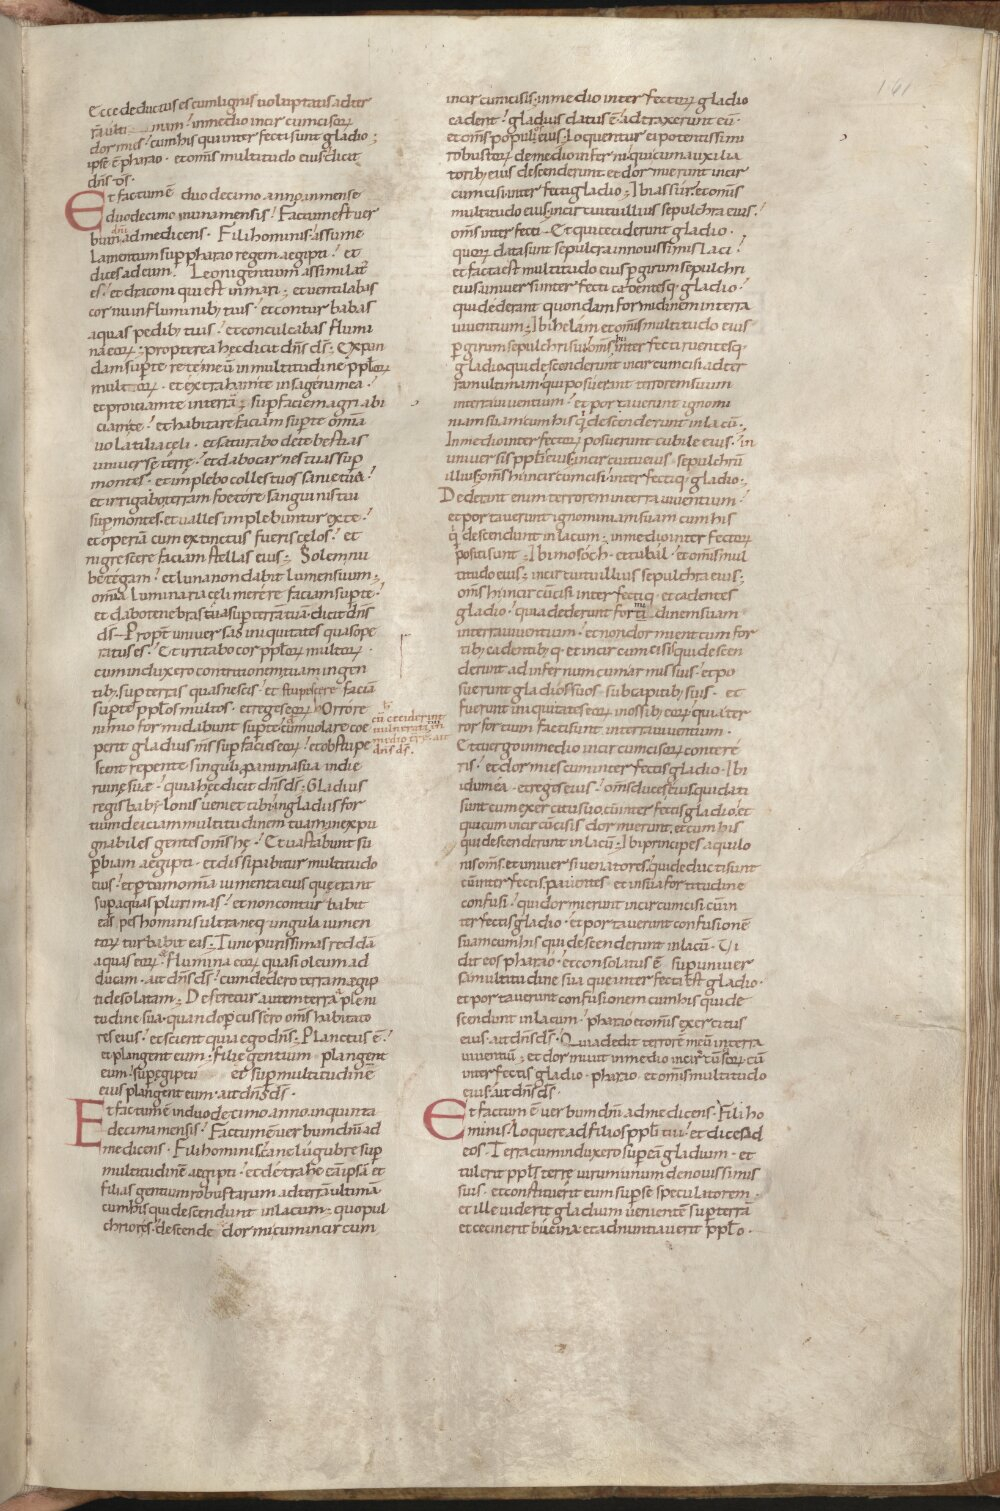 161
Ecce deductus es cum lignis uoluptatis ad ter
rā ulti mam ; in medio incircumcisoꝝ
dormies ; cum his qui interfecti sunt gladio ;
ipsē ē pharao · et om̄s multitudo eius dicit
dn̄s d̄s ·
Et factum ē duodecimo anno in mense
duodecimo in una mensis ; Factum est uer
bum dn̄i ad me dicens · Fili hominis assume
lamentum sup pharao regem aegipti ; et
dices ad eum ; Leoni gentium assimilat᷒
es ; et draconi qui est in mari ; et uentilabas
cornu in fluminibꝫ tuis ; et conturbabas
aquas pedibꝫ tuis ; et conculcabas flumi
na eoꝝ ; propterea hęc dicit dn̄s d̄s ; Expan
dam sup te rete meū in multitudine pplōꝝ
multoꝝ · et extraham te in sagena mea ;
et proiciam te in terrā ; sup faciem agri abi
ciam te ; et habitare faciam sup te omīa
uolatilia cęli · et saturabo de te bestias
uniuersę terrę ; et dabo carnes tuas sup
montes · et implebo colles tuos sanie tua ;
et irrigabo terram foetore sanguinis tui
sup montes · et ualles implebuntur ex te ;
et operiā cum extinctus fueris cęlos ; et
nigrescere faciam stellas eius ; Solem nu
be tegam ; et luna non dabit lumen suum ;
omīa luminaria cęli męrere faciam sup te ;
et dabo tenebras sup terrā tuā · dicit dn̄s
d̄s Propt̄ uniuersas iniquitates quas ope
ratus es ; Et irritabo cor pplōꝝ multoꝝ ·
cum induxero contritionem tuam in gen
tibꝫ · sup terras quas nescis · et stupescere faciā
sup te pplōs multos · et reges eoꝝ horrore
nimio formidabunt sup te cum uolare coe
perit gladius m̄s sup facies eoꝝ ; et obstupe
scent repente singuli p anima sua in die
ruinę suę ; quia hęc dicit dn̄s d̄s ; Gladius
regis babylonis ueniet tibi ; in gladiis for
tium deiciam multitudinem tuam ; inexpu
gnabiles gentes om̄s hę · Et uastabunt su
pbiam aegipti · et dissipabitur multitudo
eius ; et pdam omīa iumenta eius quę erant
sup aquas plurimas ; et non conturbabit
eas pes hominis ultra neq ungula iumen
toꝝ turbabit eas ; Tunc purissimas reddā
aquas eoꝝ ; et flumina eoꝝ quasi oleum ad
ducam · ait dn̄s d̄s ; cum dedero terram aegip
ti desolatam ; Deseretur autem terra a pleni
tudine sua · quando pcussero om̄s habitato
res eius ; et scient quia ego dn̄s · Planctus ē ;
et plangent eum · filię gentium plangent
eum · sup egiptū et sup multitudinē
eius plangent eum · ait dn̄s d̄s ·
Et factum ē in duodecimo anno · in quinta
decima mensis ; Factum ē uerbum dn̄i ad
me dicens · Fili hominis cane lugubre sup
multitudinē aegipti · et detrahe eā ipsā et
filias gentium robustarum ad terrā ultimā
cum his qui descendunt in lacum ; quo pul
chriores · descende dormi cum incircum
cū ceciderint
uulnerati
medio ait
dn̄s d̄s ·
incircumcisis · in medio interfectoꝝ gladio
cadent ; gladius datus ē · adtraxerunt eū ·
et om̄s populi eius · loquentur ei potentissimi
robustoꝝ de medio inferni · qui cum auxilia
toribꝫ eius descenderunt et dormierunt incir
cumcisi interfecti gladio ; Ibi assur et om̄s
multitudo eius in circuitu illius sepulchra eius ;
om̄s interfecti · Et qui ceciderunt gladio ·
quoꝝ data sunt sepulcra in nouissimis laci ;
et facta est multitudo eius p girum sepulchri
eius uniuersi interfecti cadentesq gladio ;
qui dederant quondam formidinem in terra
uiuentium ; Ibi helam et om̄s multitudo eius
p girum sepulchri sui · om̄s hi interfecti ruentesq
gladio qui descenderunt incircumcisi ad ter
ram ultimam qui posuerunt terrorem suum
in terra uiuentium ; et portauerunt ignomi
niam suam cum his q̇ descenderunt in lacū ·
In medio interfectoꝝ posuerunt cubile eius ; in
uniuersis pplīs eius ; in circuitu eius sepulchrū
illius ; om̄s hi incircumcisi · interfectiq gladio ;
Dederunt enim terrorem in terra uiuentium ;
et portauerunt ignominiam suam cum his
q̇ descendunt in lacum ; in medio interfectoꝝ
positi sunt ; Ibi mosoch · et tubal · et om̄s mul
titudo eius ; in circuitu illius sepulchra eius ;
om̄s hi incircūcisi interfectiq · et cadentes
gladio ; quia dederunt formi dinem suam
in terra uiuentium · et non dormient cum for
tibꝫ cadentibꝫq · et incircumcisis qui descen
derunt ad infernum cum armis suis ; et po
suerunt gladios suos · sub capitibꝫ suis · et
fuerunt iniquitates eoꝝ in ossibꝫ eoꝝ quia ter
ror fortium facti sunt in terra uiuentium ·
Et tu ergo in medio incircumcisoꝝ contere
ris ; et dormies cum interfectis gladio · Ibi
idumea · et reges eius ; om̄s duces eius qui dati
sunt cum exercitu suo cū interfectis gladio ; et
qui cum incircūcisis dormierunt · et cum his
qui descenderunt in lacū ; Ibi principes aquilo
nis om̄s · et uniuersi uenatores ; qui deducti sunt
cū interfectis · pauentes et in sua fortitudine
confusi ; qui dormierunt incircumcisi cū in
terfectis gladio · et portauerunt confusionē
suam cum his qui descenderunt in lacū · Ui
dit eos pharao · et consolatus ē sup uniuer
sa multitudine sua que interfecta est gladio ·
et portauerunt confusionem cum his qui de
scendunt in lacum · pharao et om̄s exercitus
eius · ait dn̄s d̄s · Quia dedit terrorē meū in terra
uiuentiū ; et dormiuit in medio incircūcisoꝝ cū
interfectis gladio · pharao · et om̄s multitudo
eius · ait dn̄s d̄s ·
Et factum ē uerbum dn̄i ad me dicens · Fili ho
minis · loquere ad filios pplī tui · et dices ad
eos · Terra cum induxero sup eā gladium · et
tulerit ppls̄ terrę uirum unum de nouissimis
suis · et constituerit eum sup se speculatorem ·
et ille uiderit gladium uenientē sup terrā
et cecinerit bucina · et adnuntiauerit pplō ·